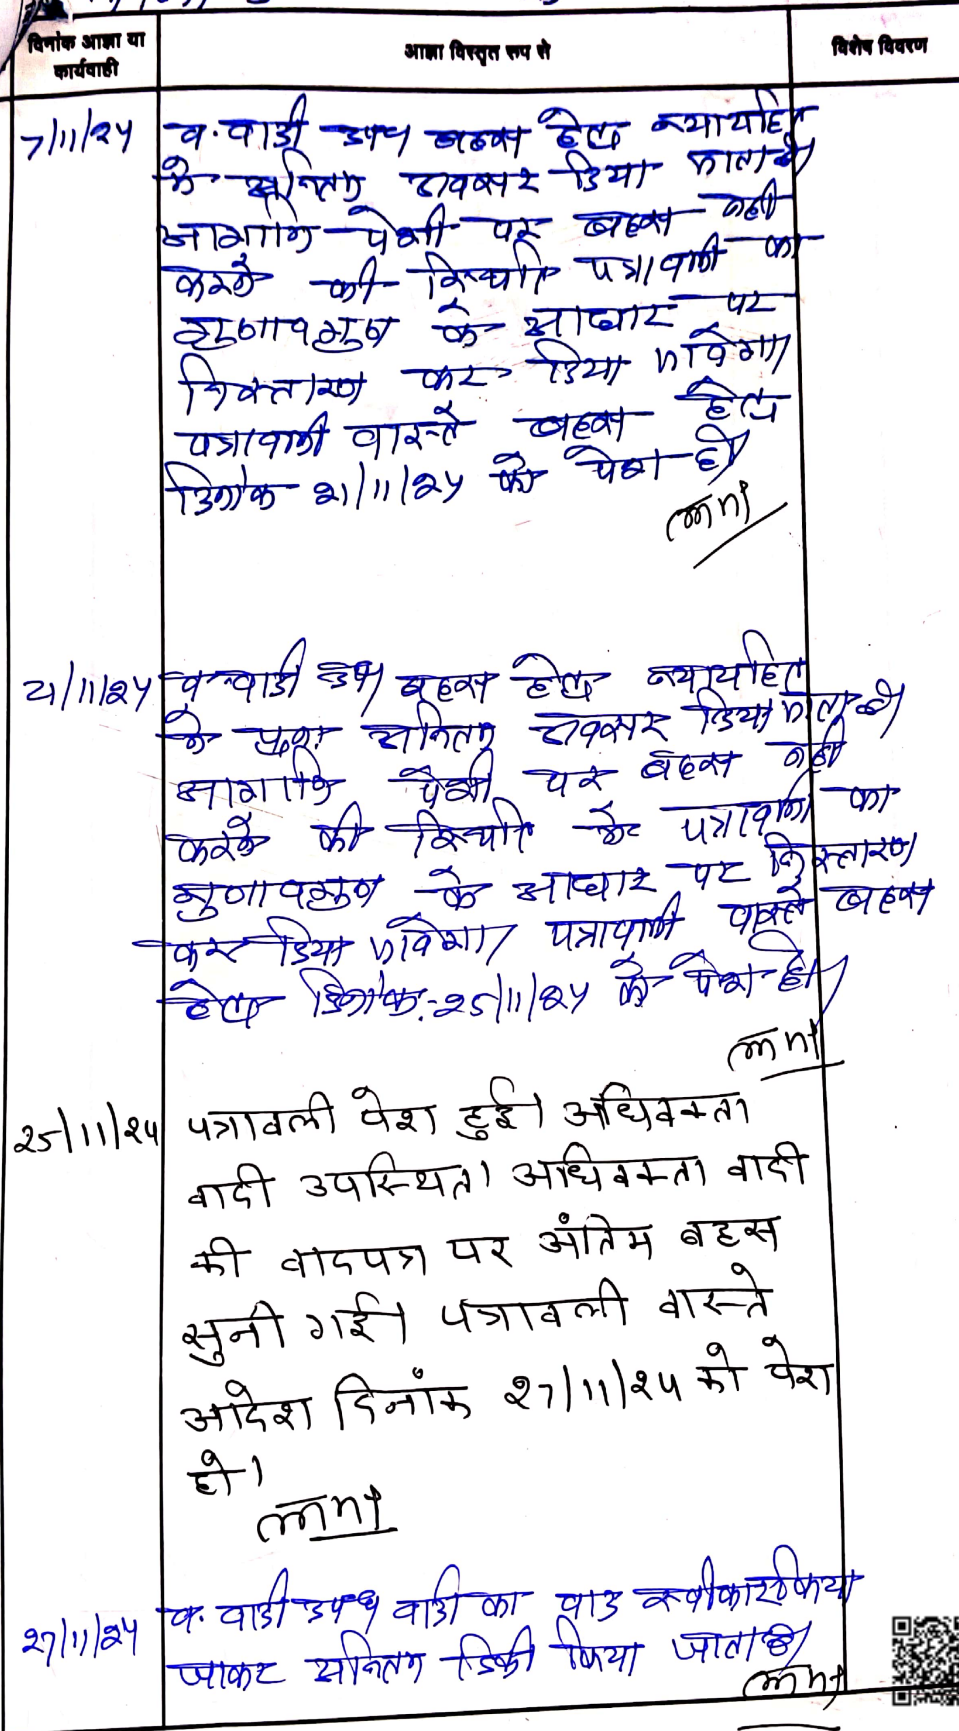 दिनांक आज्ञा या
कार्यवाही
आज्ञा विस्तृत रूप से
विशेष विवरण
7/11/24
व. वादी उप० बहस हेतु न्यायहित
मे अन्तिम अवसर दिया जाता है।
आगामी पेशी पर बहस नही
करने की स्थिति पत्रावली का
गुणावगुण के आधार पर
निस्तारण कर दिया जावेगा।
पत्रावली वास्ते बहस हेतु
दिनांक 21/11/24 को पेश हो।
21/11/24
व वादी उप० बहस हेतु न्यायहित
मे पुनः अन्तिम अवसर दिया जाता है।
आगामी पेशी पर बहस नही
करने की स्थिति मे पत्रावली का
गुणावगुण के आधार पर निस्तारण
कर दिया जावेगा। पत्रावली वास्ते बहस
हेतु दिनांक: 25/11/24 को पेश हो।
25/11/24
पत्रावली पेश हुई। अधिवक्ता
वादी उपस्थित। अधिवक्ता वादी
की वादपत्र पर अंतिम बहस
सुनी गई। पत्रावली वास्ते
आदेश दिनांक 27/11/24 को पेश
हो।
27/11/24
व. वादी उप० वादी का वाद स्वीकार किया
जाकर अन्तिम डिक्री किया जाता है।